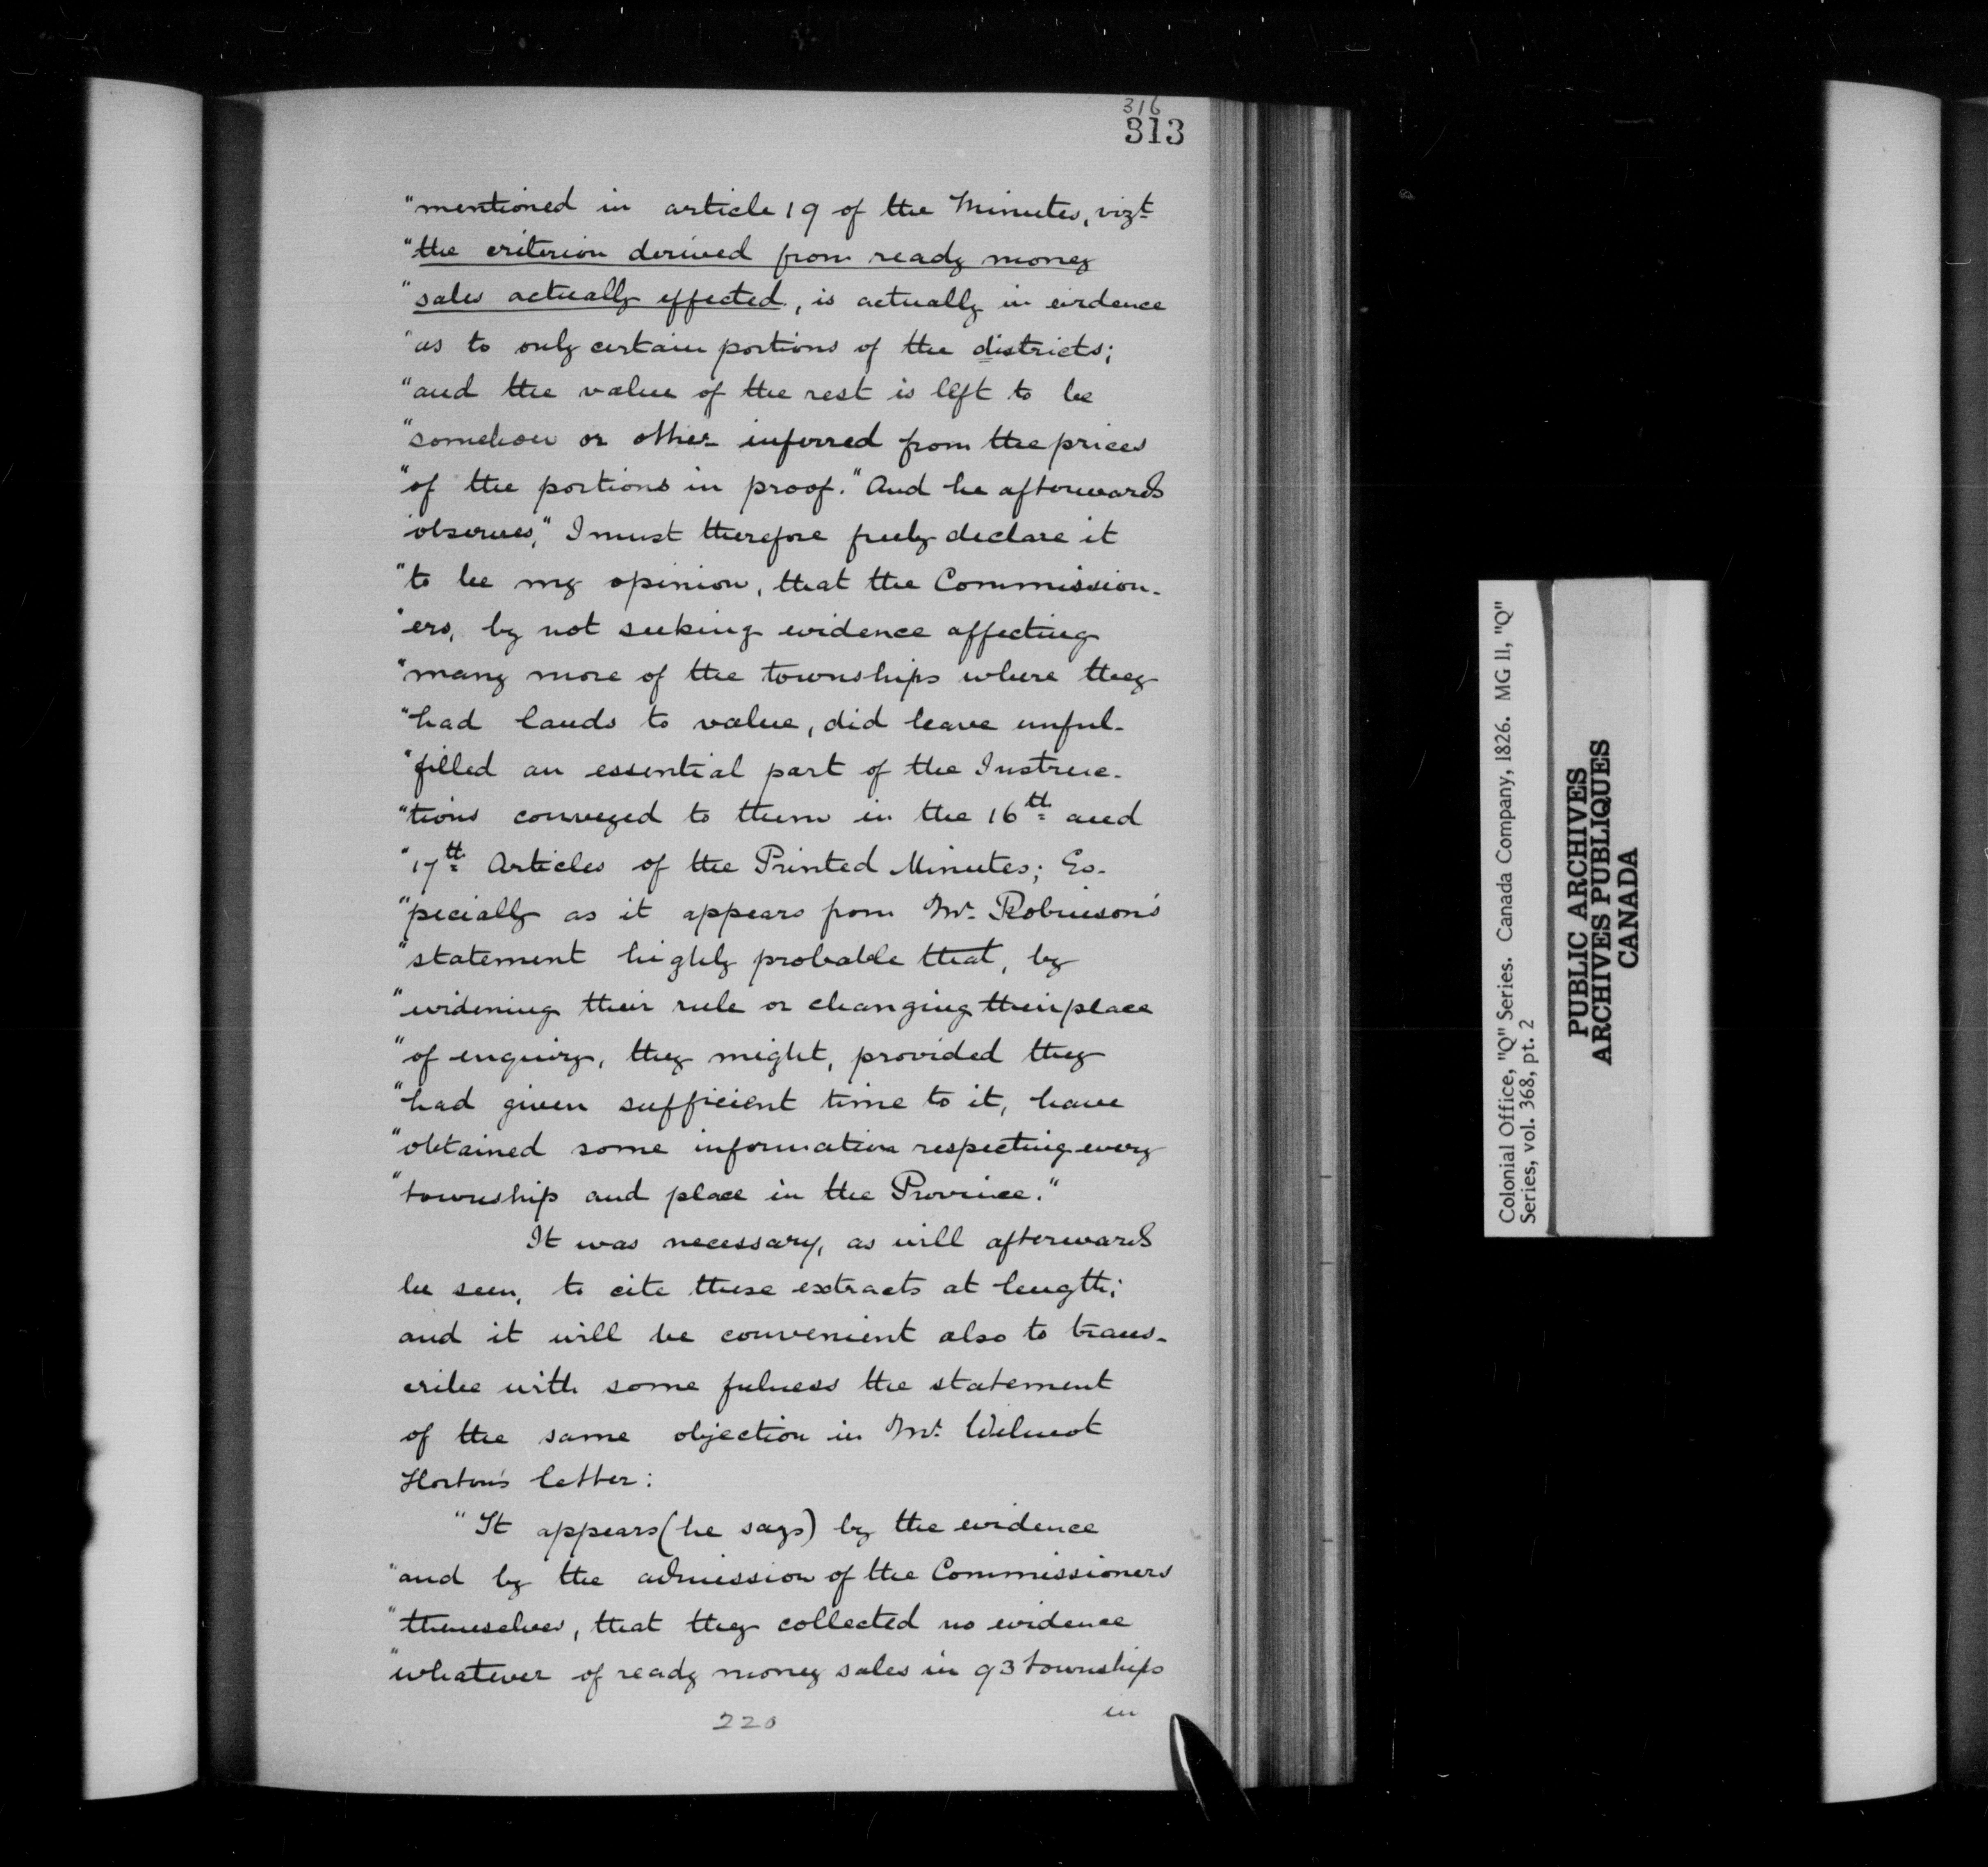 316
313
"mentioned in article 19 of the Minutes, vizt
"the criterion derived from ready money
"sales actually effected, is actually in evidence
"as to only certain portions of the districts;
"and the value of the rest is left to be
"somehow or other inferred from the prices
"of the portions in proof." And he afterwards
observes, "I must therefore freely declare it
"to be my opinion, that the Commission-
"ers, by not seeking evidence affecting
"many more of the townships where they
"had lands to value, did leave unful-
"filled an essential part of the Instruc-
"tions conveyed to them in the 16th and
"17th Articles of the Printed Minutes; Es-
"pecially as it appears from Mr. Robinson's
"statement highly probable that, by
"widening their rule or changing their place
"of enquiry, they might, provided they
"had given sufficient time to it, have
"obtained some information respecting every
"township and place in the Province."
It was necessary, as will afterwards
be seen, to cite these extracts at length;
and it will be convenient also to trans-
cribe with some fulness the statement
of the same objection in Mr. Wilmot
Horton's letter:
"It appears (he says) by the evidence
"and by the admission of the Commissioners
"themselves, that they collected no evidence
"whatever of ready money sales in 93 townships
in
220
Colonial Office, "Q" Series. Canada Company, 1826. MG 11, "Q"
Series, vol. 368, pt. 2
PUBLIC ARCHIVES
ARCHIVES PUBLIQUES
CANADA